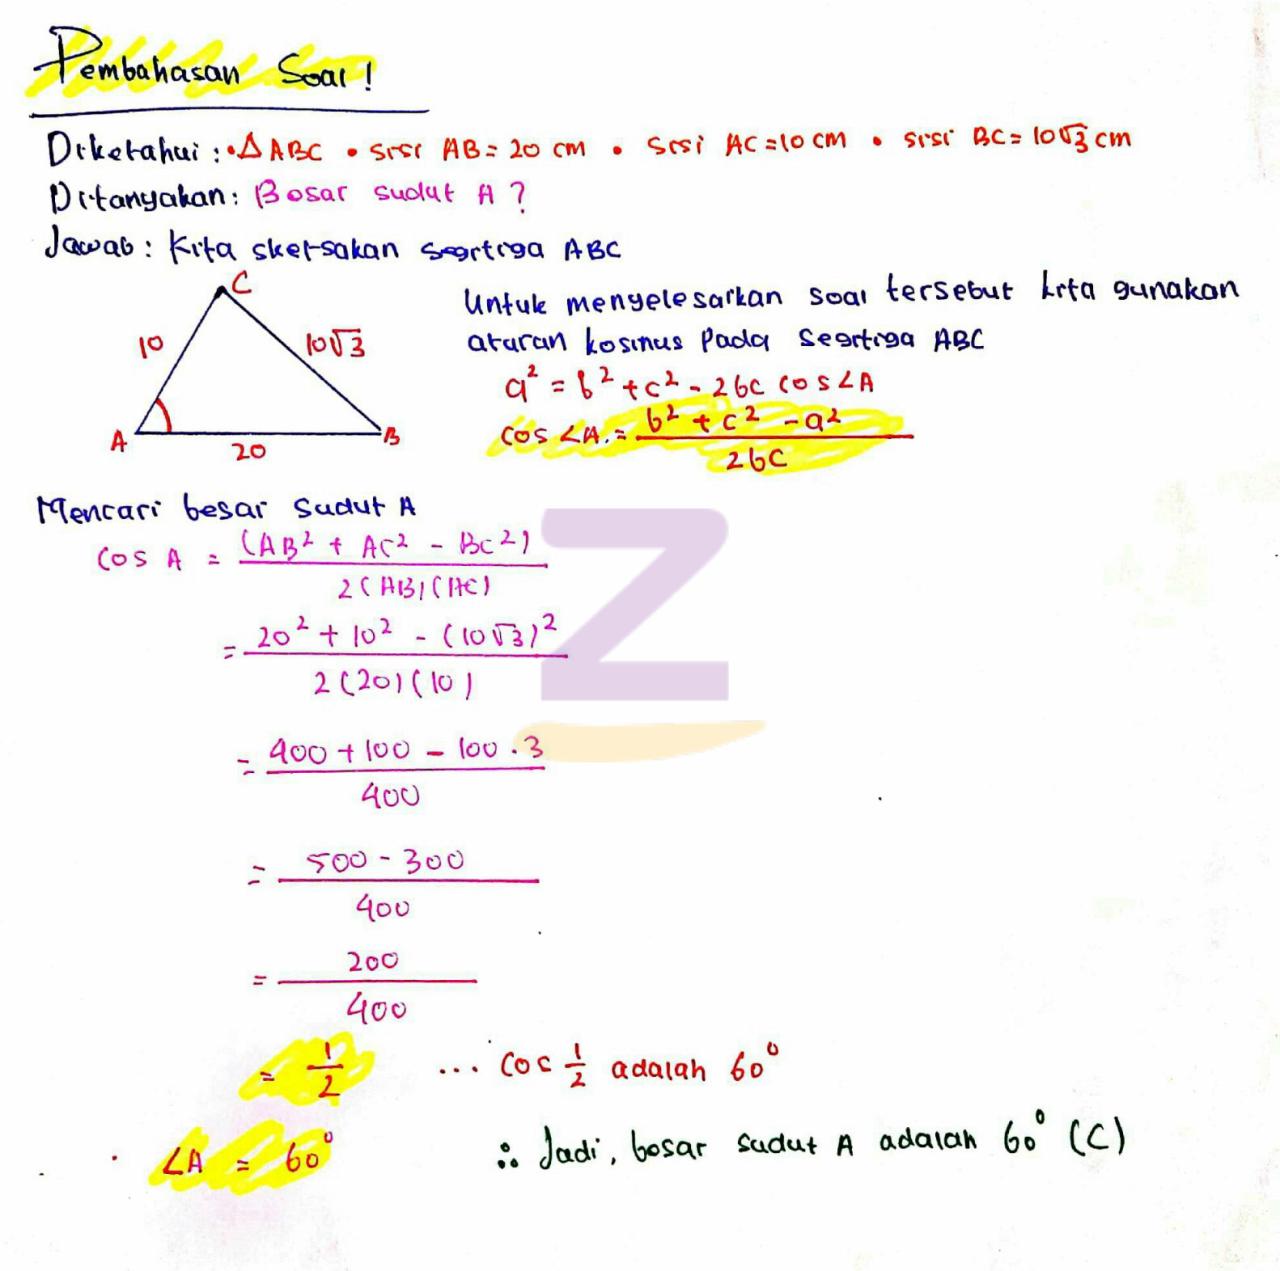 Pembahasan Soal!
Diketahui : • ΔABC • sisi AB = 20 cm • sisi AC = 10 cm • sisi BC = 10√3 cm
Ditanyakan : Besar sudut A ?
Jawab : Kita sketsakan segitiga ABC
C
10
10√3
A
20
B
Untuk menyelesaikan soal tersebut kita gunakan
aturan kosinus pada segitiga ABC
a² = b² + c² - 2bc cos∠A
cos ∠A = (b² + c² - a²) / 2bc
Mencari besar sudut A
cos A = (AB² + AC² - BC²) / 2(AB)(AC)
= 20² + 10² - (10√3)² / 2(20)(10)
= 400 + 100 - 100 . 3 / 400
= 500 - 300 / 400
= 200 / 400
= 1/2 ... cos 1/2 adalah 60°
∠A = 60° ∴ Jadi, besar sudut A adalah 60° (C)
Z